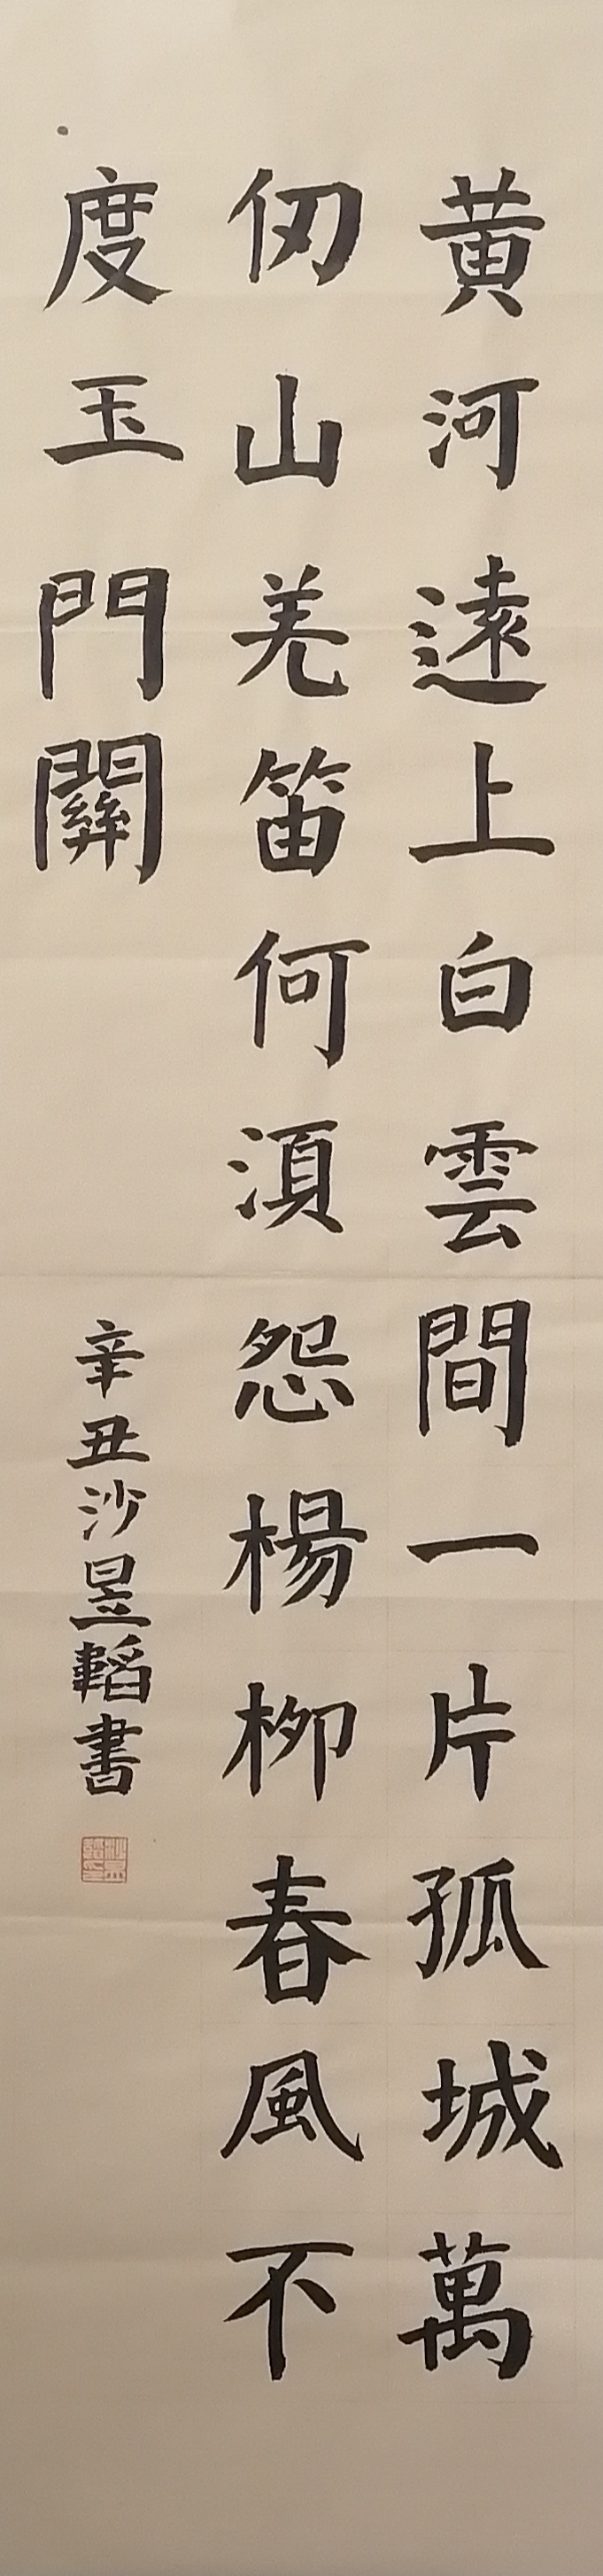 黃河遠上白雲間一片孤城萬
仞山羌笛何須怨楊柳春風不
度玉門關
辛丑沙昱韜書